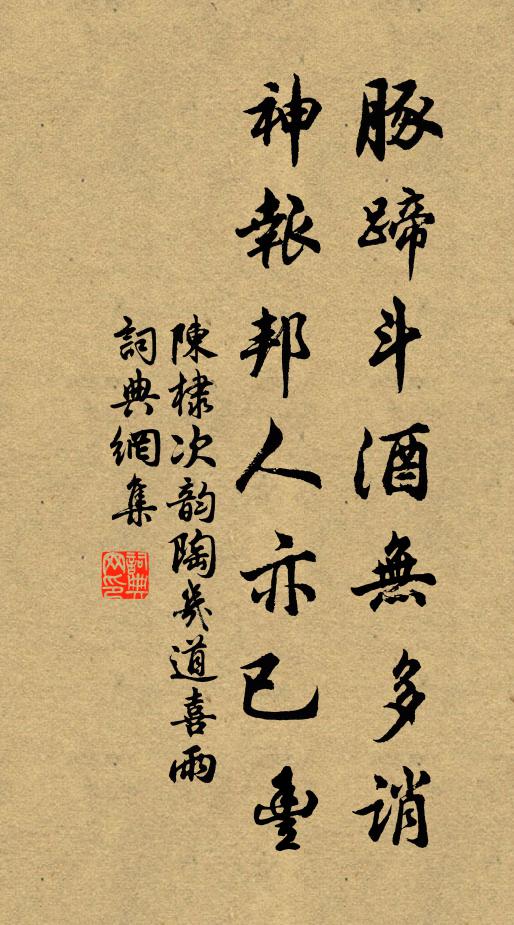 豚蹄斗酒無多誚
神報邦人亦已豐
陳棣次韵陶幾道喜雨
詞典網集
詞典
网印